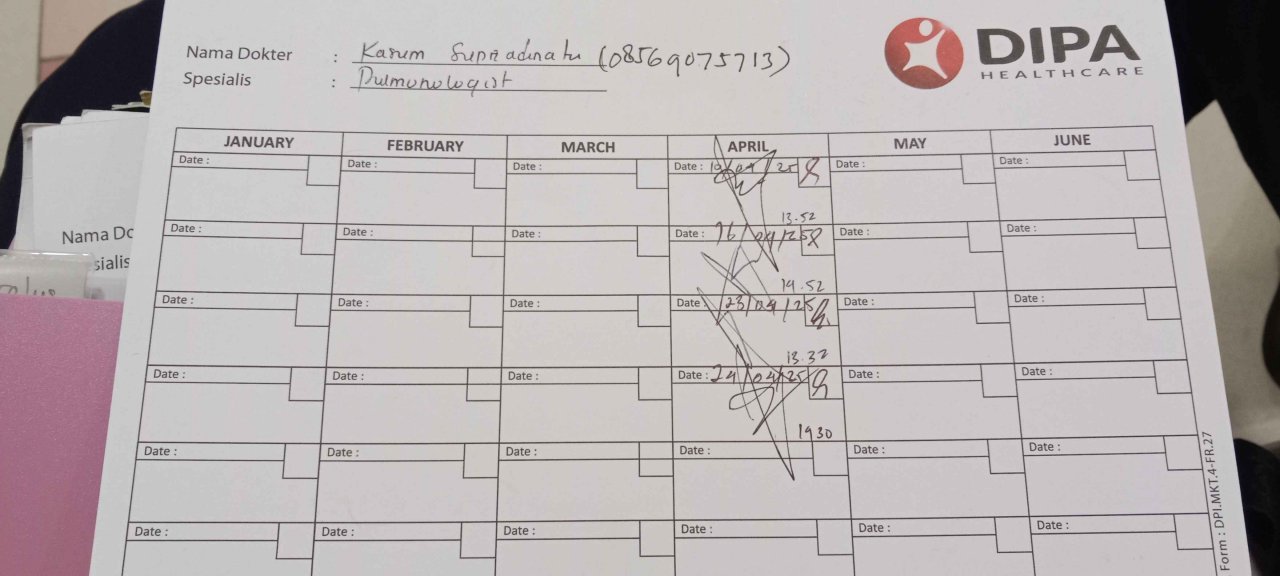 DIPA
HEALTHCARE
Nama Dokter : Karum Supraadinatu (08569075713)
Spesialis : Pulmonologist
JANUARY FEBRUARY MARCH APRIL MAY JUNE
Date : Date : Date : Date : 10/04/25 Date : Date :
13.52
Date : Date : Date : Date : 16/04/25 Date : Date :
14.52
Date : Date : Date : Date : 23/04/25 Date : Date :
13.32
Date : Date : Date : Date : 24/04/25 Date : Date :
1930
Date : Date : Date : Date : Date : Date :
Date : Date : Date : Date : Date : Date :
Form : DPI.MKT.4-FR.27
Nama Do
sialis